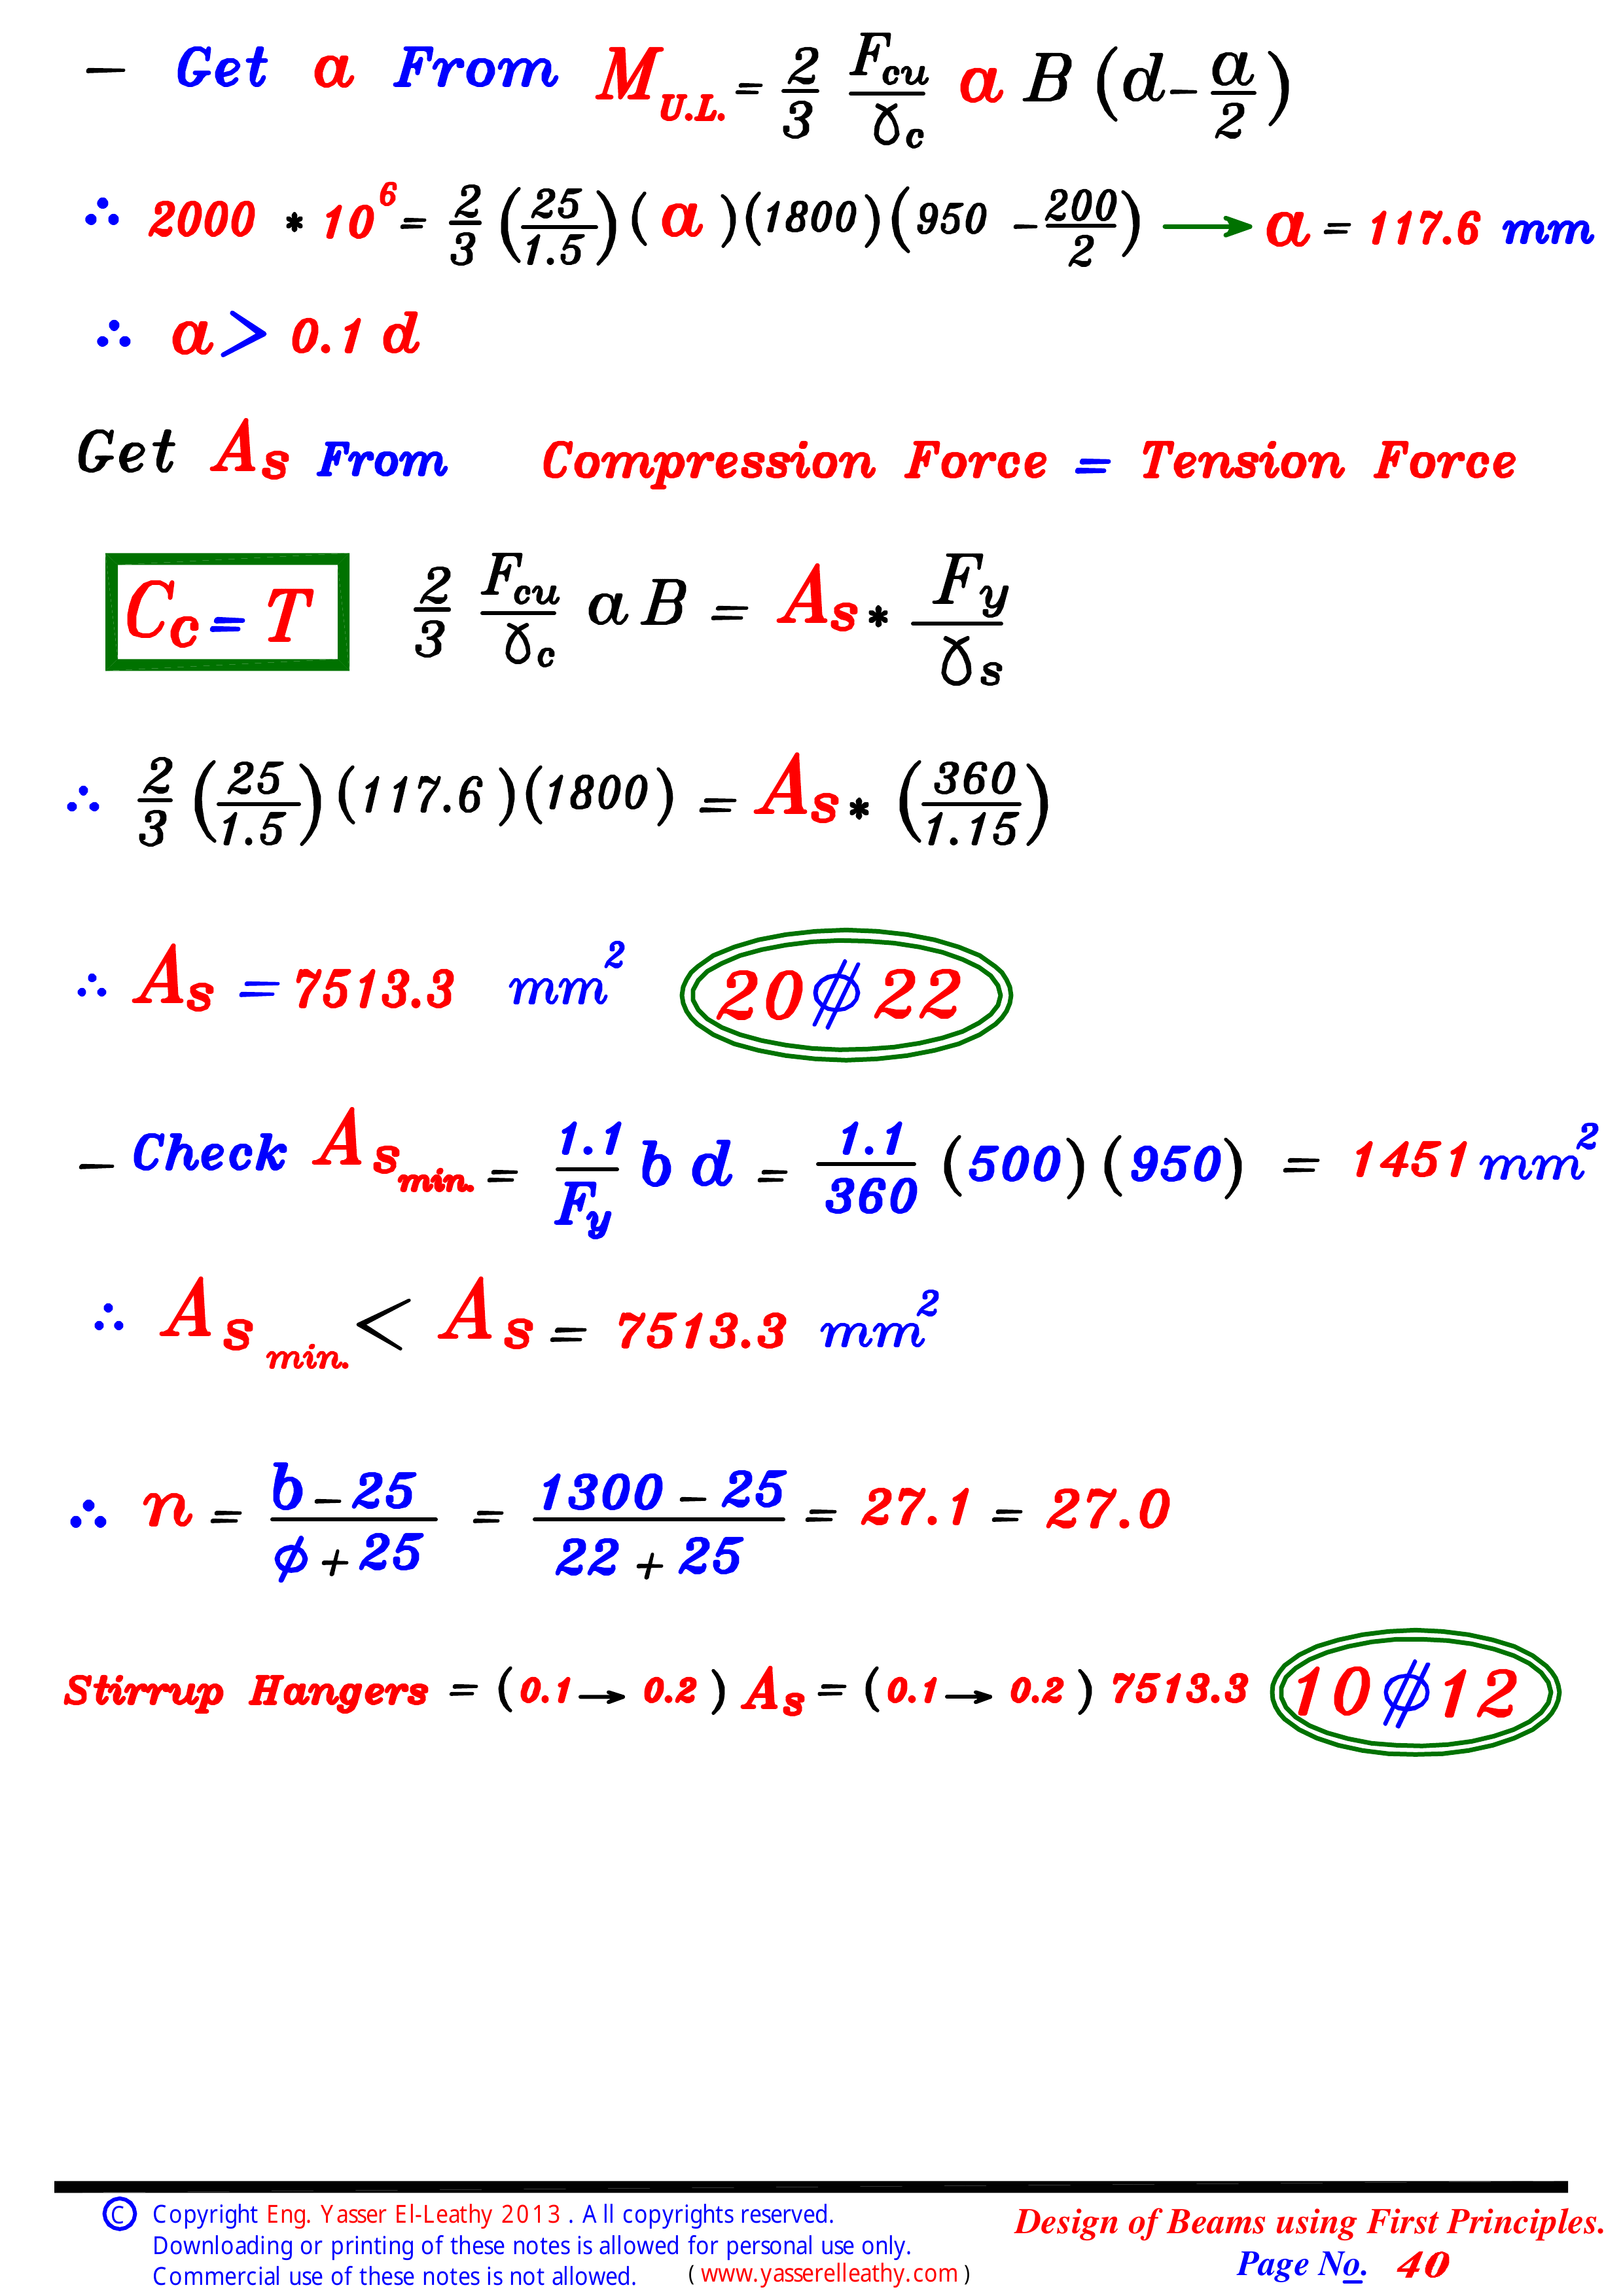 - Get a From M U.L. = 2/3 Fcu/γc a B (d - a/2)
∴ 2000 * 10^6 = 2/3 (25/1.5) ( a ) (1800) (950 - 200/2) → a = 117.6 mm
∴ a > 0.1 d
Get As From Compression Force = Tension Force
Cc = T 2/3 Fcu/γc a B = As * Fy/γs
∴ 2/3 (25/1.5) (117.6) (1800) = As * (360/1.15)
∴ As = 7513.3 mm² 20 ⌀ 22
- Check As min. = 1.1/Fy b d = 1.1/360 (500) (950) = 1451 mm²
∴ As min. < As = 7513.3 mm²
∴ n = b - 25 / ϕ + 25 = 1300 - 25 / 22 + 25 = 27.1 = 27.0
Stirrup Hangers = (0.1 → 0.2) As = (0.1 → 0.2) 7513.3 10 ⌀ 12
© Copyright Eng. Yasser El-Leathy 2013 . All copyrights reserved.
Downloading or printing of these notes is allowed for personal use only.
Commercial use of these notes is not allowed. ( www.yasserelleathy.com )
Design of Beams using First Principles.
Page No. 40